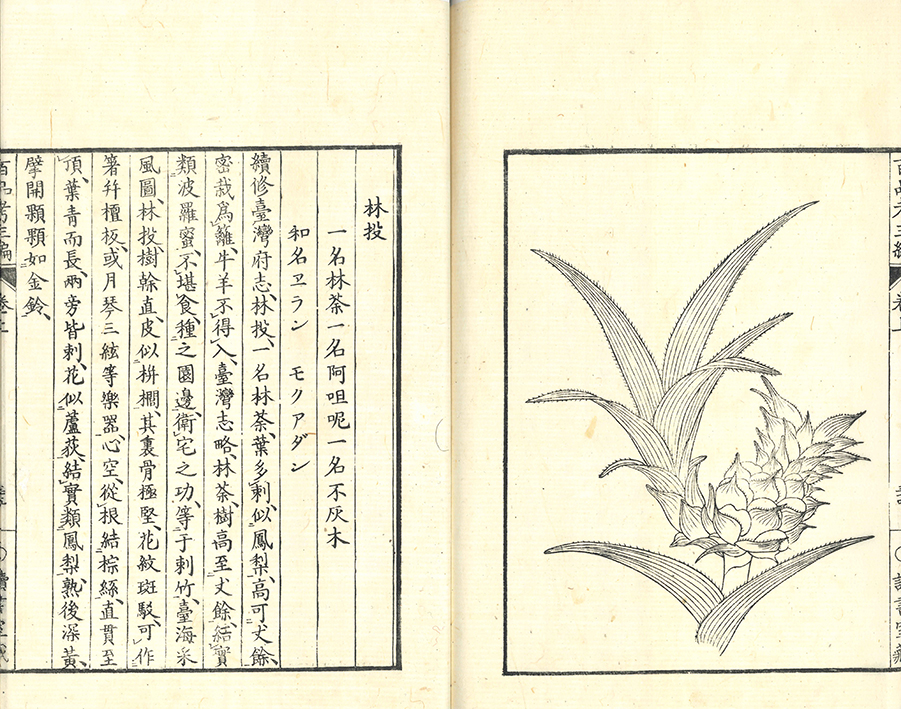 林投
一名林荼一名阿呾呢一名不灰木
和名ヱラン モクアダン
續修臺灣府志、林投、一名林荼、葉多刺、似鳳梨、高可丈餘、
密栽爲籬、牛羊不得入、臺灣志略、林荼、樹高至丈餘、結實
類波羅蜜、不堪食、種之園邊、衛宅之功、等于刺竹、臺海采
風圖、林投樹、榦直、皮似栟櫚、其裏骨極堅、花紋斑駁、可作
箸幷檀板、或月琴三絃等樂器、心空、從根結棕絲、直貫至
頂、葉青而長、兩旁皆刺、花似蘆荻、結實類鳳梨、熟後深黃、
擘開顆顆如金鈴、